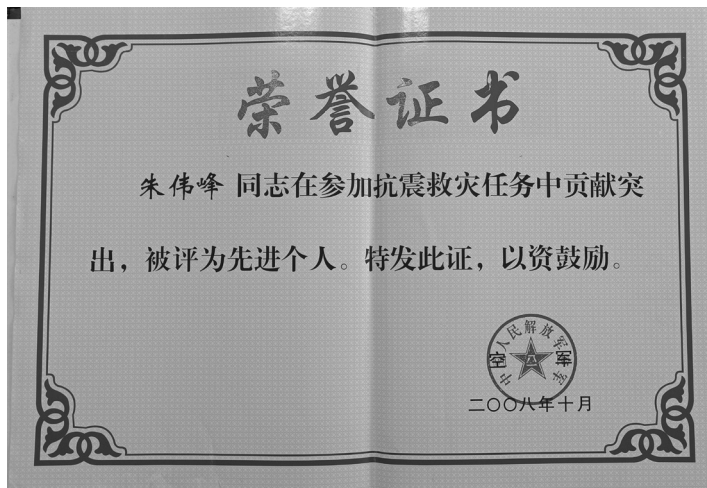 荣誉证书
朱伟峰 同志在参加抗震救灾任务中贡献突
出，被评为先进个人。特发此证，以资鼓励。
中国人民解放军
空军
八一
二〇〇八年十月